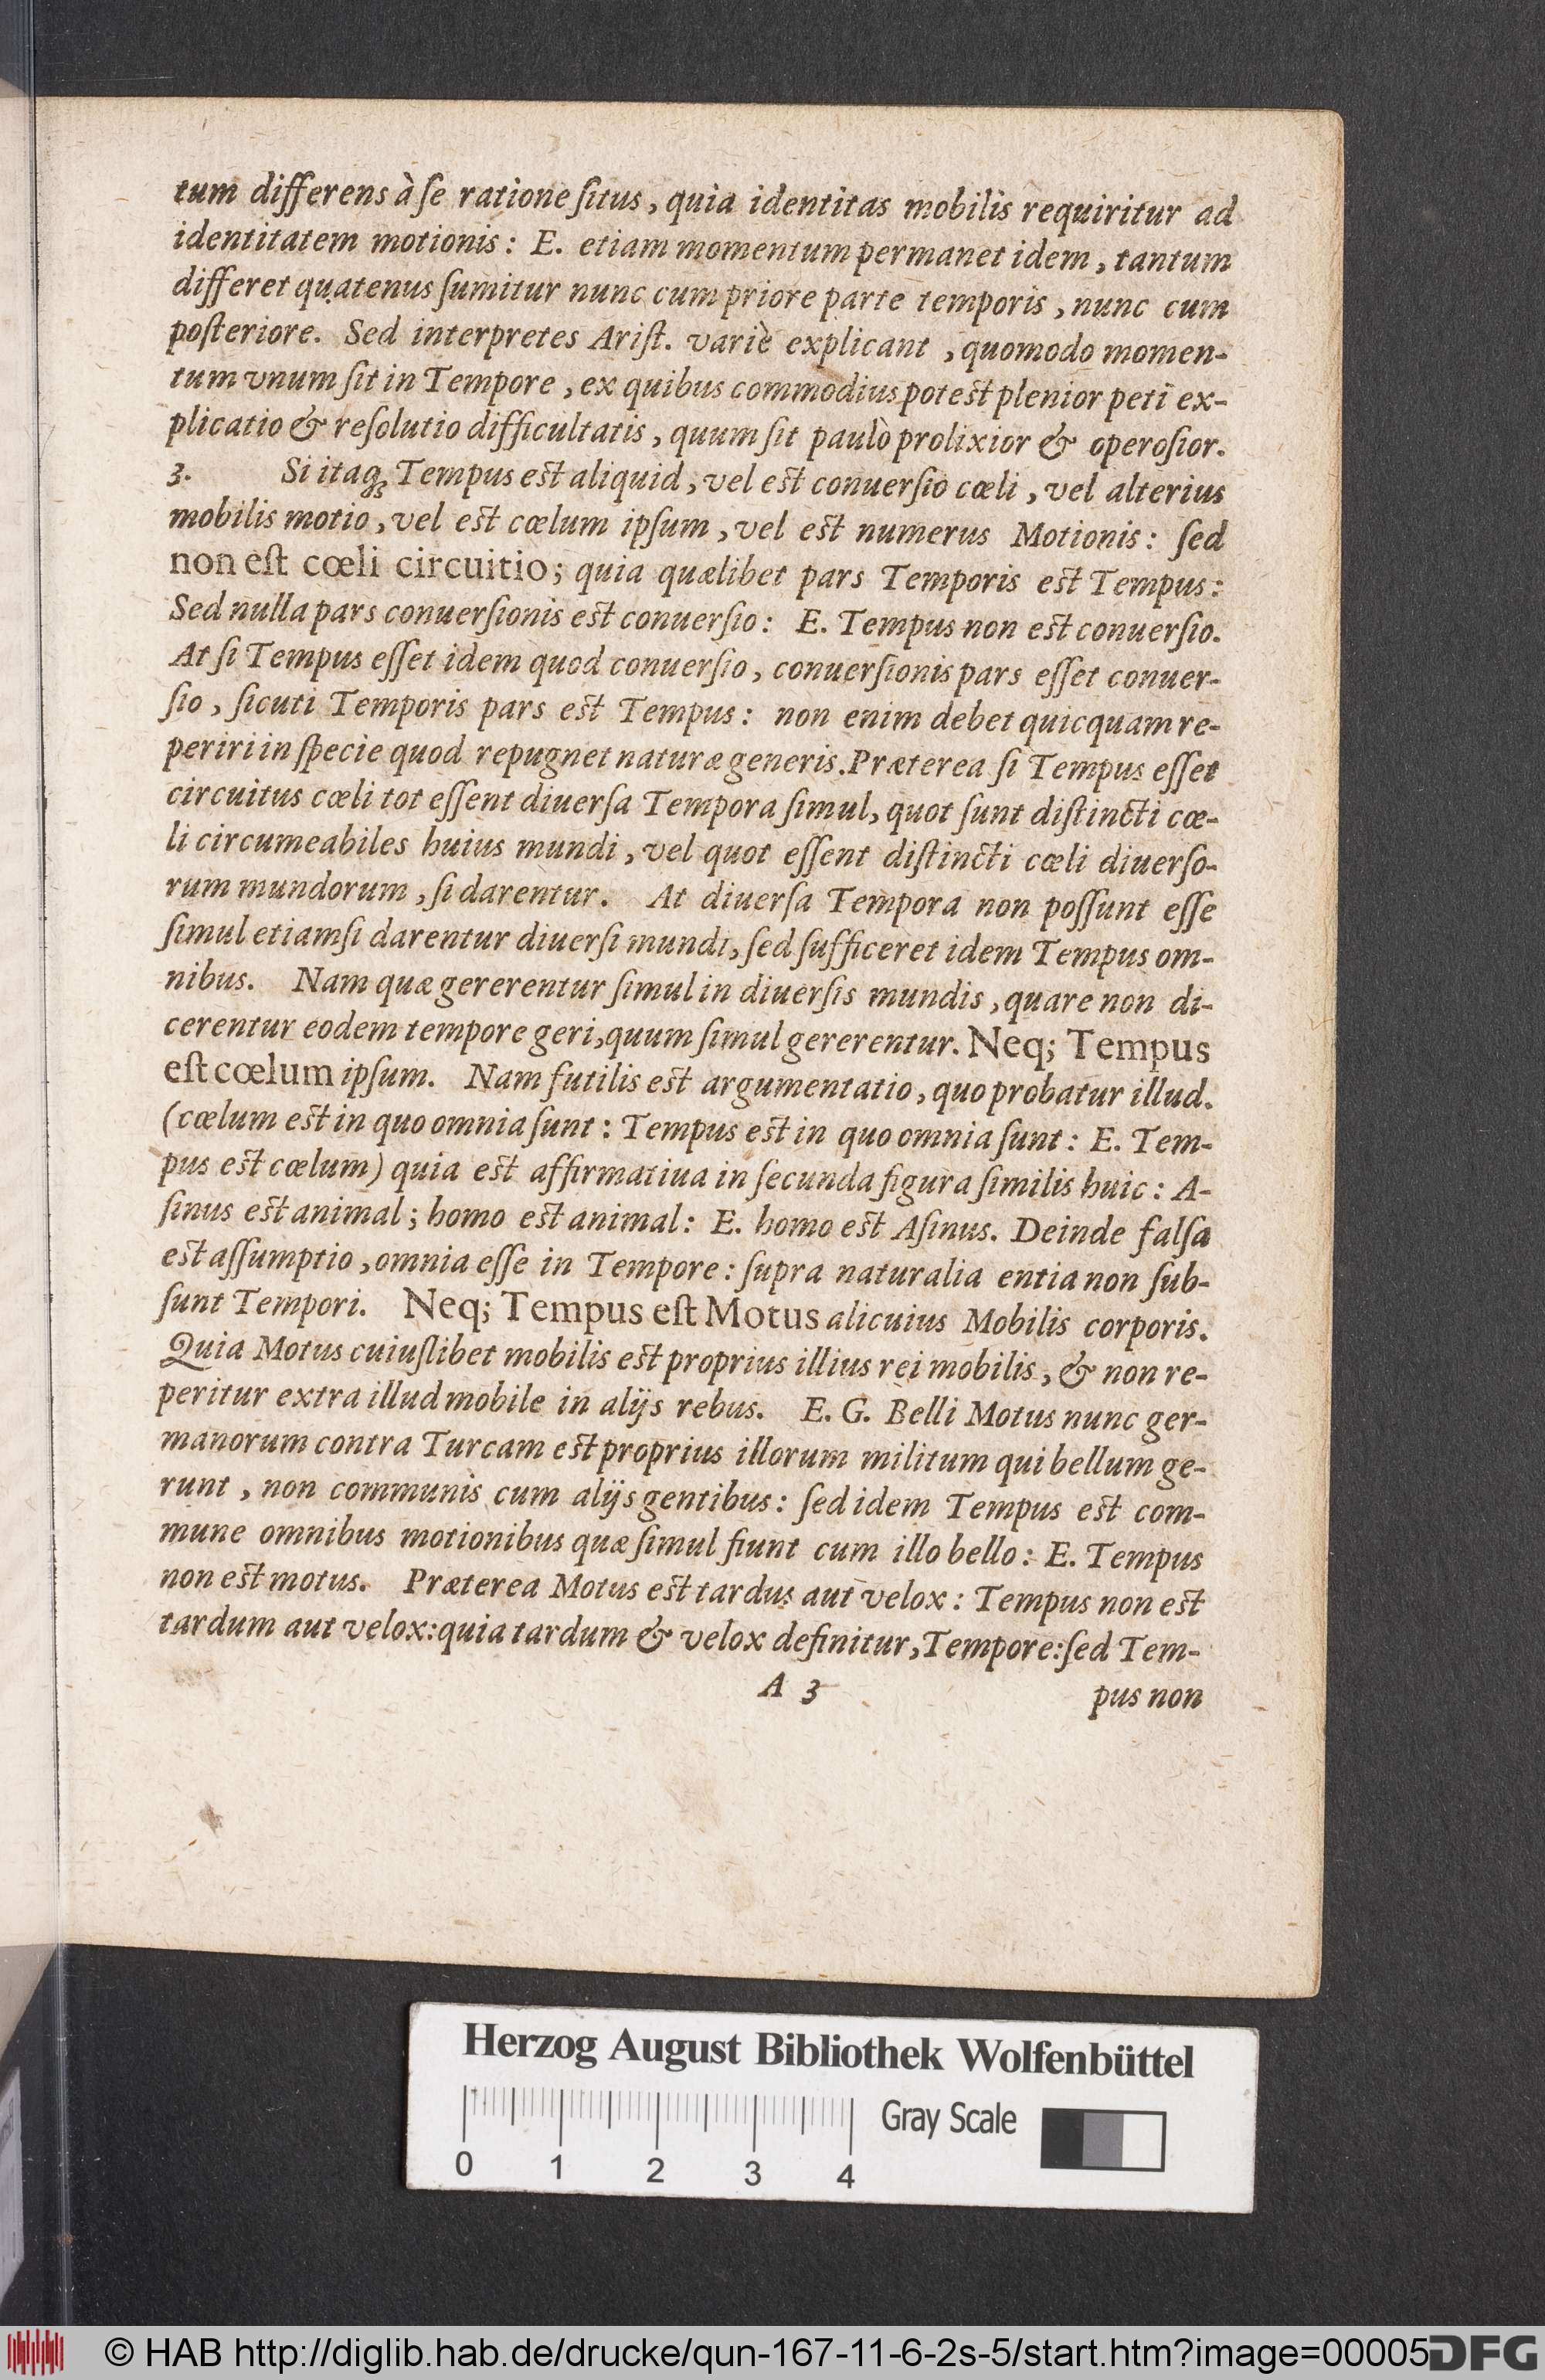 tum differens à ſe ratione ſitus, quia identitas mobilis requiritur ad
identitatem motionis: E. etiam momentum permanet idem, tantum
differet quatenus ſumitur nunc cum priore parte temporis, nunc cum
poſteriore. Sed interpretes Ariſt. variè explicant, quomodo momen-
tum vnum ſit in Tempore, ex quibus commodius poteſt plenior peti ex-
plicatio & reſolutio difficultatis, quum ſit paulò prolixior & operoſior.
3. Si itaq; Tempus eſt aliquid, vel eſt conuerſio cœli, vel alterius
mobilis motio, vel eſt cœlum ipſum, vel eſt numerus Motionis: ſed
non eſt cœli circuitio; quia quælibet pars Temporis eſt Tempus:
Sed nulla pars conuerſionis eſt conuerſio: E. Tempus non eſt conuerſio.
At ſi Tempus eſſet idem quod conuerſio, conuerſionis pars eſſet conuer-
ſio, ſicuti Temporis pars eſt Tempus: non enim debet quicquam re-
periri in ſpecie quod repugnet naturæ generis. Præterea ſi Tempus eſſet
circuitus cœli tot eſſent diuerſa Tempora ſimul, quot ſunt diſtincti cœ-
li circumeabiles huius mundi, vel quot eſſent diſtincti cœli diuerſo-
rum mundorum, ſi darentur. At diuerſa Tempora non poſſunt eſſe
ſimul etiamſi darentur diuerſi mundi, ſed ſufficeret idem Tempus om-
nibus. Nam quæ gererentur ſimul in diuerſis mundis, quare non di-
cerentur eodem tempore geri, quum ſimul gererentur. Neq; Tempus
eſt cœlum ipſum. Nam futilis eſt argumentatio, quo probatur illud.
(cœlum eſt in quo omnia ſunt: Tempus eſt in quo omnia ſunt: E. Tem-
pus eſt cœlum) quia eſt affirmatiua in ſecunda figura ſimilis huic: A-
ſinus eſt animal; homo eſt animal: E. homo eſt Aſinus. Deinde falſa
eſt aſſumptio, omnia eſſe in Tempore: ſupra naturalia entia non ſub-
ſunt Tempori. Neq; Tempus eſt Motus alicuius Mobilis corporis.
Quia Motus cuiuſlibet mobilis eſt proprius illius rei mobilis, & non re-
peritur extra illud mobile in alijs rebus. E. G. Belli Motus nunc ger-
manorum contra Turcam eſt proprius illorum militum qui bellum ge-
runt, non communis cum alijs gentibus: ſed idem Tempus eſt com-
mune omnibus motionibus quæ ſimul fiunt cum illo bello: E. Tempus
non eſt motus. Præterea Motus eſt tardus aut velox: Tempus non eſt
tardum aut velox: quia tardum & velox definitur, Tempore: ſed Tem-
A 3 pus non
Herzog August Bibliothek Wolfenbüttel
Gray Scale
0 1 2 3 4
© HAB http://diglib.hab.de/drucke/qun-167-11-6-2s-5/start.htm?image=00005
DFG